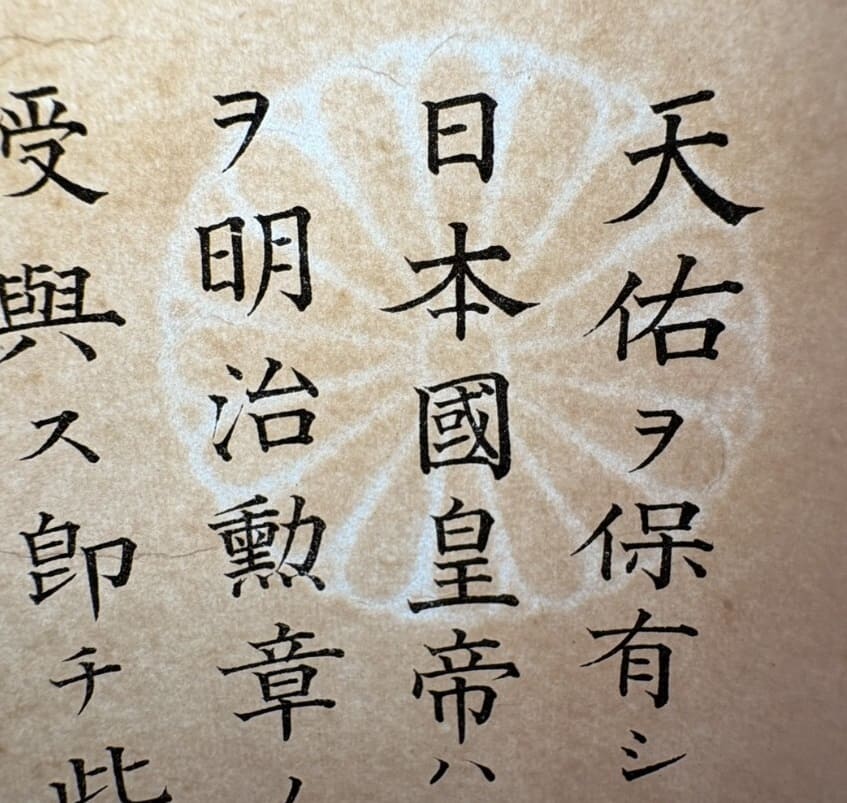 天佑ヲ保有シ
日本國皇帝ハ
ヲ明治勳章ノ
受與ス卽チ此